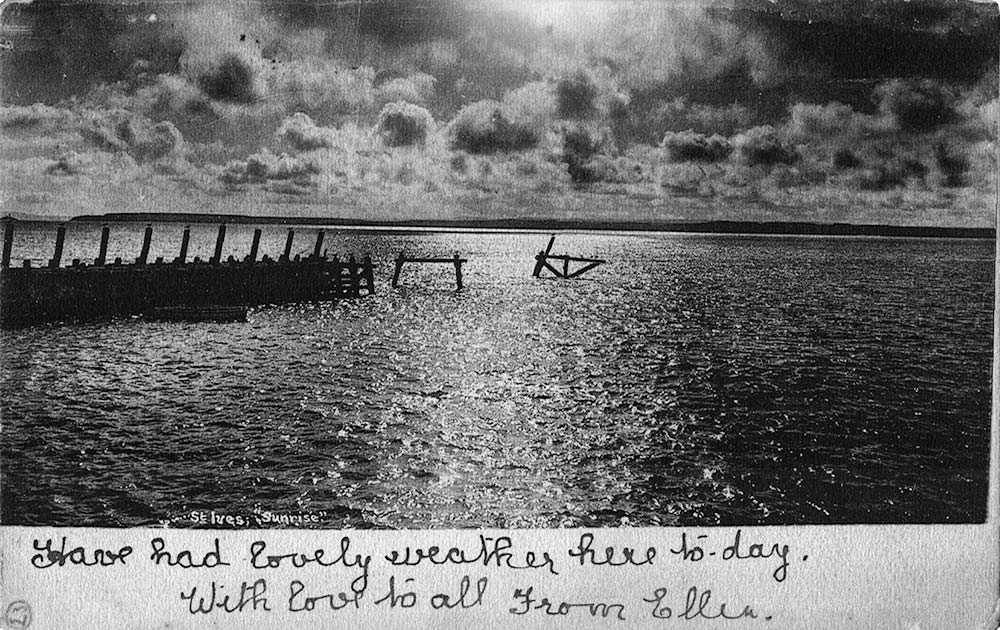 St Ives, "Sunrise."
Have had lovely weather here to-day.
With love to all From Ellen.